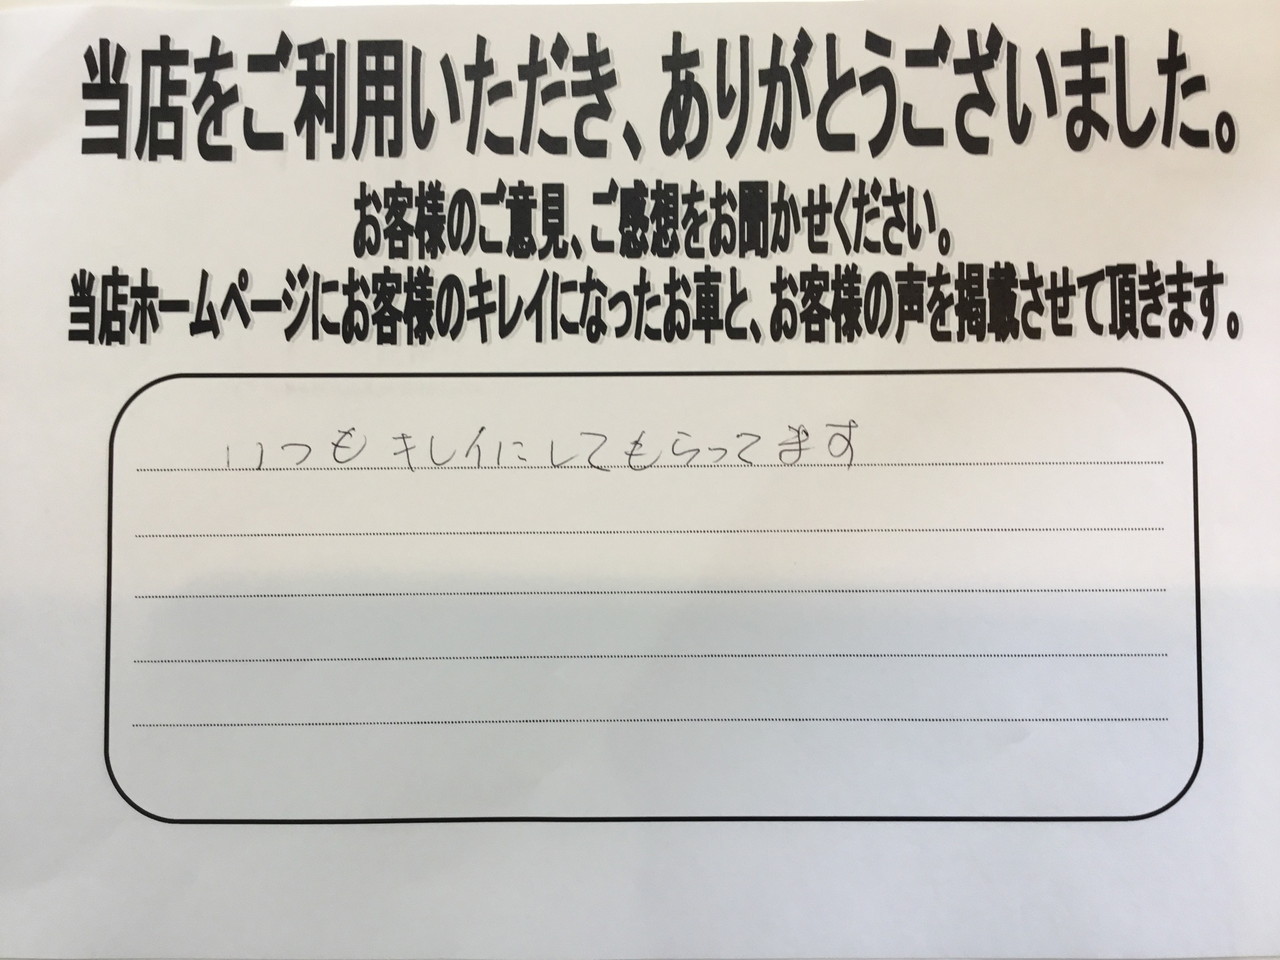 当店をご利用いただき、ありがとうございました。
お客様のご意見、ご感想をお聞かせください。
当店ホームページにお客様のキレイになったお車と、お客様の声を掲載させて頂きます。
いつもキレイにしてもらってます